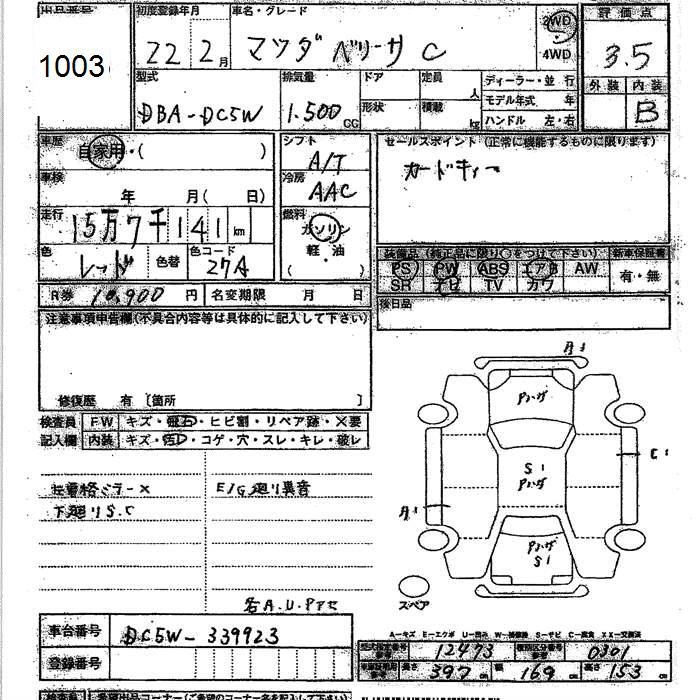 出品番号
1003
初度登録年月
22 2月
車名・グレード
マツダ ベリーサ C
2WD
・
4WD
評価点
3.5
外装 内装
B
型式
DBA-DC5W
排気量
1.500 CC
ドア
形状
定員
人
積載
kg
ディーラー・並 行
モデル年式 年
ハンドル 左・右
車歴
自家用・( )
シフト
A/T
セールスポイント(正常に機能するものに限ります)
カードキィー
車検
年 月( 日)
冷房
AAC
走行
15万7千141 km
燃料
ガソリン
・
軽・油
( )
色
レッド
色替
色コード
27A
装備品(純正品に限り○をつけて下さい)
新車保証書
PS PW ABS エアB AW
SR ナビ TV カワ
有・無
R券 10,900 円
名変期限 月 日
後日品
注意事項申告欄(不具合内容等は具体的に記入して下さい)
修復歴 有 〔箇所 〕
検査員
記入欄
FW キズ・飛石・ヒビ割・リペア跡・×要
内装 キズ・汚レ・コゲ・穴・スレ・キレ・破レ
下廻りS.C
E/G廻り異音
各A.U.Pアセ
A1
Pハゲ
S1
Pハゲ
C1
A1
Pハゲ
S1
スペア
車台番号
DC5W-339923
登録番号
A−キズ E−エクボ U−凹み W−補修跡 S−サビ C−腐食 XX−交換済
型式指定番号
参考
12473
類別区分番号
参考
0301
長さ 397 cm
幅 169 cm
高さ 153 cm